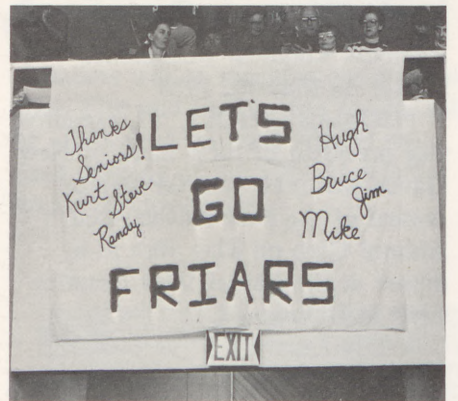 Thanks
Seniors!
Kurt Steve
Randy
LET'S
GO
FRIARS
Hugh
Bruce
Jim
Mike
EXIT